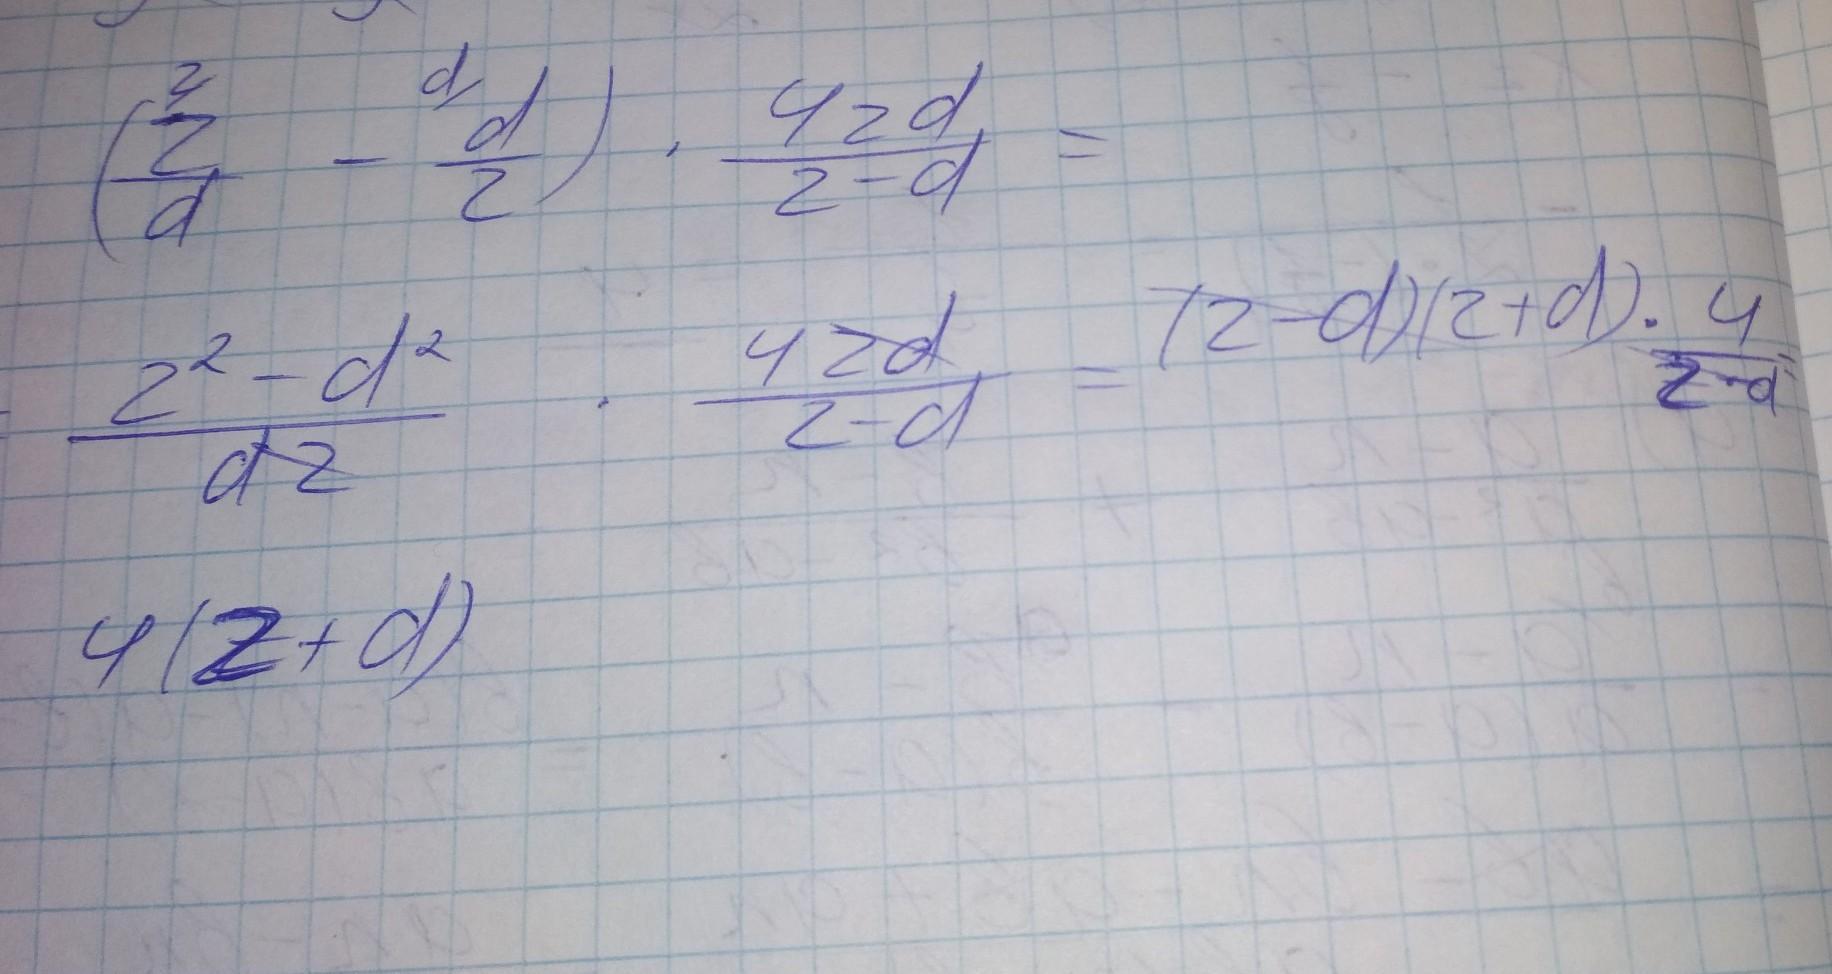 (z/d - d/z) · 4zd/(z-d) =
(z² - d²)/dz · 4zd/(z-d) = (z-d)(z+d) · 4/(z-d)
4(z+d)